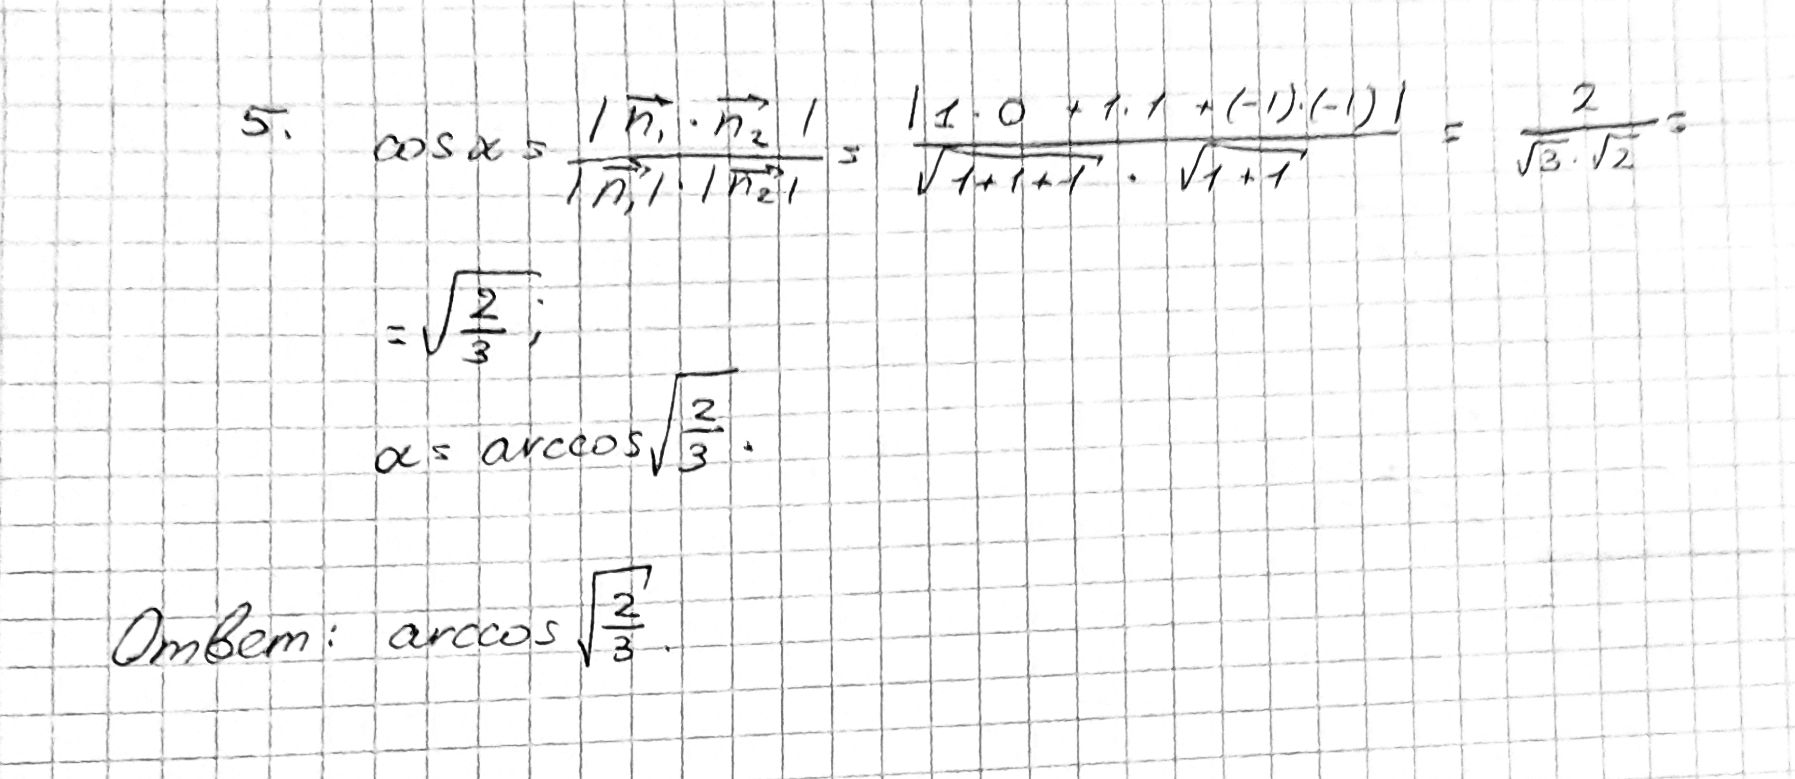 5. cos α = |n₁⃗ · n₂⃗| / |n₁⃗| · |n₂⃗| = |1 · 0 + 1 · 1 + (-1) · (-1)| / √1+1+1 · √1+1 = 2 / √3 · √2 =
= √2/3 ;
α = arccos √2/3 .
Ответ: arccos √2/3 .